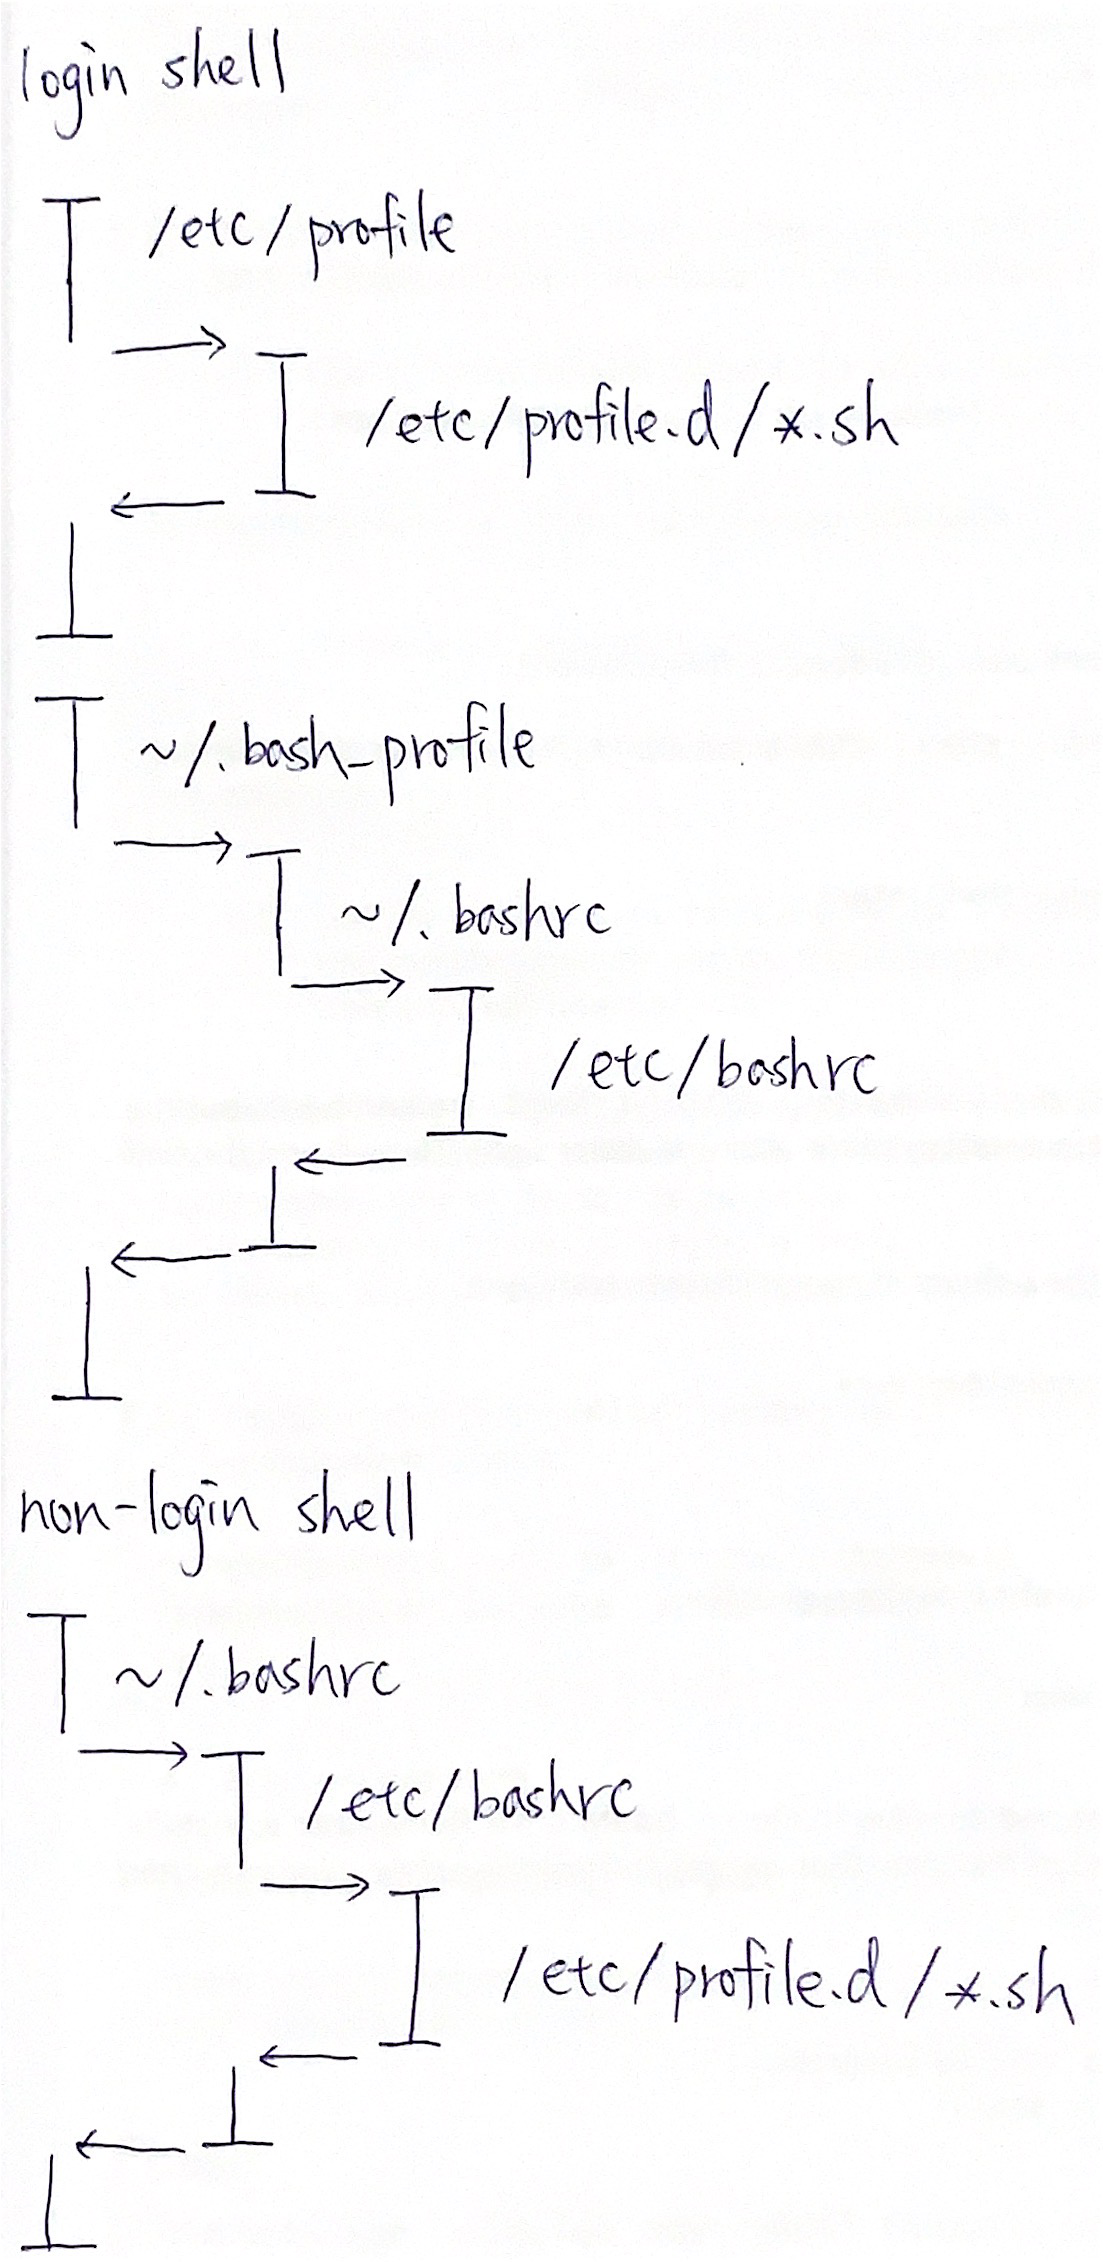 login shell
/etc/profile
/etc/profile.d/*.sh
~/.bash_profile
~/.bashrc
/etc/bashrc
non-login shell
~/.bashrc
/etc/bashrc
/etc/profile.d/*.sh